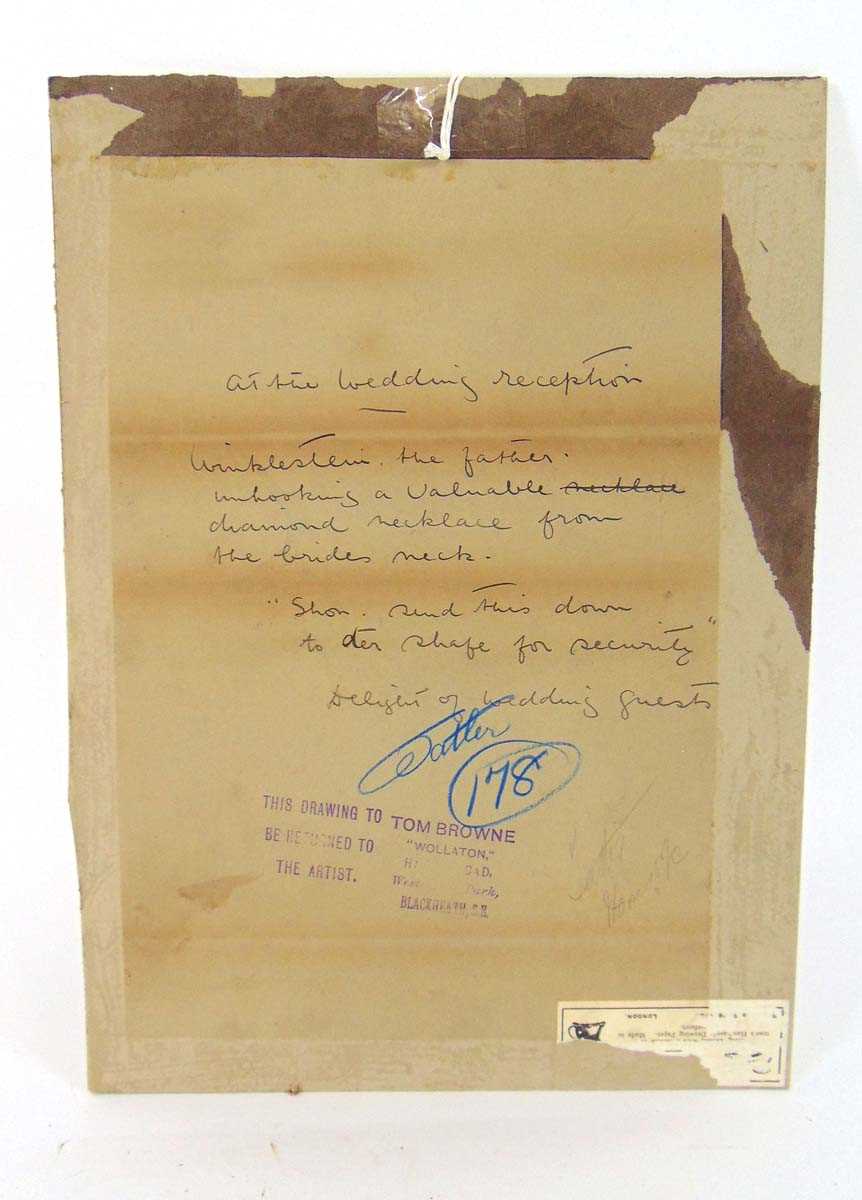 At the Wedding reception
Winklestein. the father.
unhooking a Valuable necklace
diamond necklace from
the brides neck.
"Shon. send this down
to der shafe for security"
Delight of wedding guests
Tatler
178
THIS DRAWING TO
BE RETURNED TO
THE ARTIST.
TOM BROWNE
"WOLLATON,"
BLACKHEATH, S.E.
LONDON.
Drawing Paper. Made in